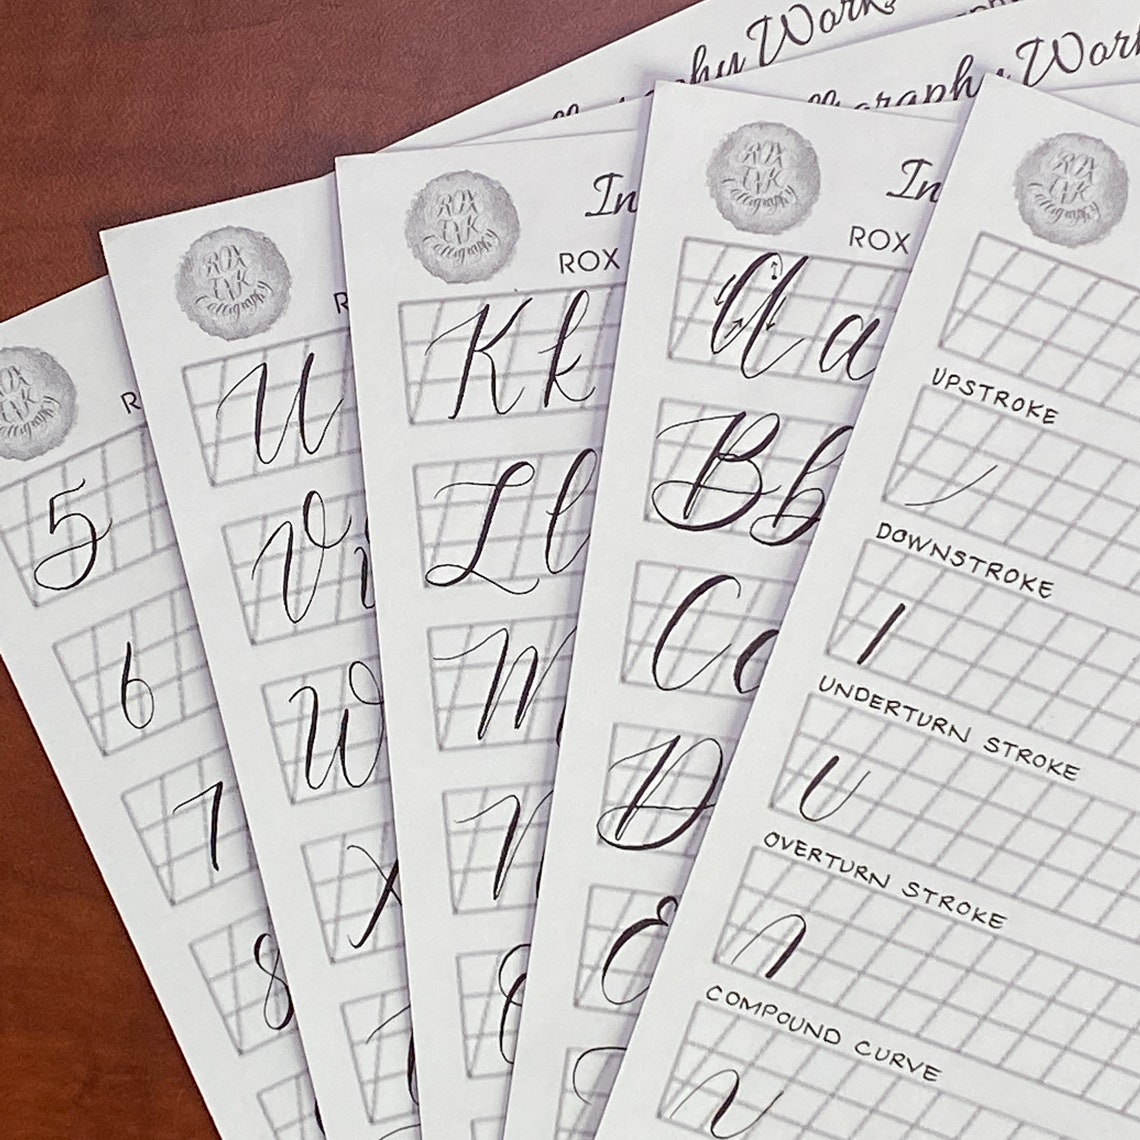 Calligraphy Work
ROX
INK
Calligraphy
5
6
7
8
ROX
INK
Calligraphy
R
U
V
W
X
ROX
INK
Calligraphy
In
ROX
K k
L l
M
N
O
ROX
INK
Calligraphy
In
ROX
A a
B b
C c
D
E
ROX
INK
Calligraphy
UPSTROKE
DOWNSTROKE
UNDERTURN STROKE
OVERTURN STROKE
COMPOUND CURVE